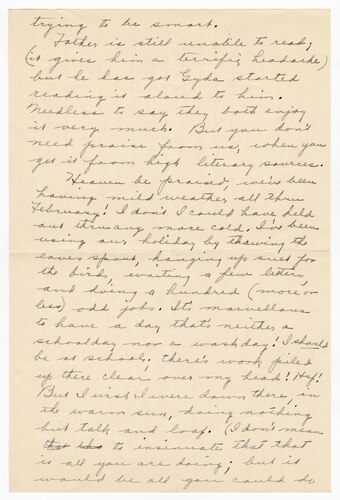 trying to be smart.
Father is still unable to read,
(it gives him a terrific headache)
but he has got Gyda started
reading it aloud to him.
Needless to say they both enjoy
it very much. But you don't
need praise from us, when you
get it from high literary sources.
Heaven be praised, we've been
having mild weather all thru
February! I don't I could have held
out thru any more cold. I've been
using our holiday by thawing the
eaves spout, hanging up suet for
the birds, writing a few letters
and doing a hundred (more or
less) odd jobs. It's marvellous
to have a day that's neither a
schoolday nor a washday! I should
be at school, there's work piled
up there clear over my head! Huf!
But I wish I were down there, in
the warm sun, doing nothing
but talk and loaf. (I don't mean
to insinuate that that
is all you are doing; but it
would be all you could do